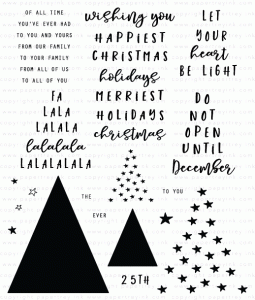 OF ALL TIME
YOU'VE EVER HAD
TO YOU AND YOURS
FROM OUR FAMILY
TO YOUR FAMILY
FROM ALL OF US
TO ALL OF YOU
FA
LALA
LALALA
lalalala
LALALALALA
wishing you
HAPPIEST
CHRISTMAS
holidays
MERRIEST
HOLIDAYS
christmas
LET
YOUR
heart
BE LIGHT
DO
NOT
OPEN
UNTIL
December
THE
TO YOU
EVER
25TH